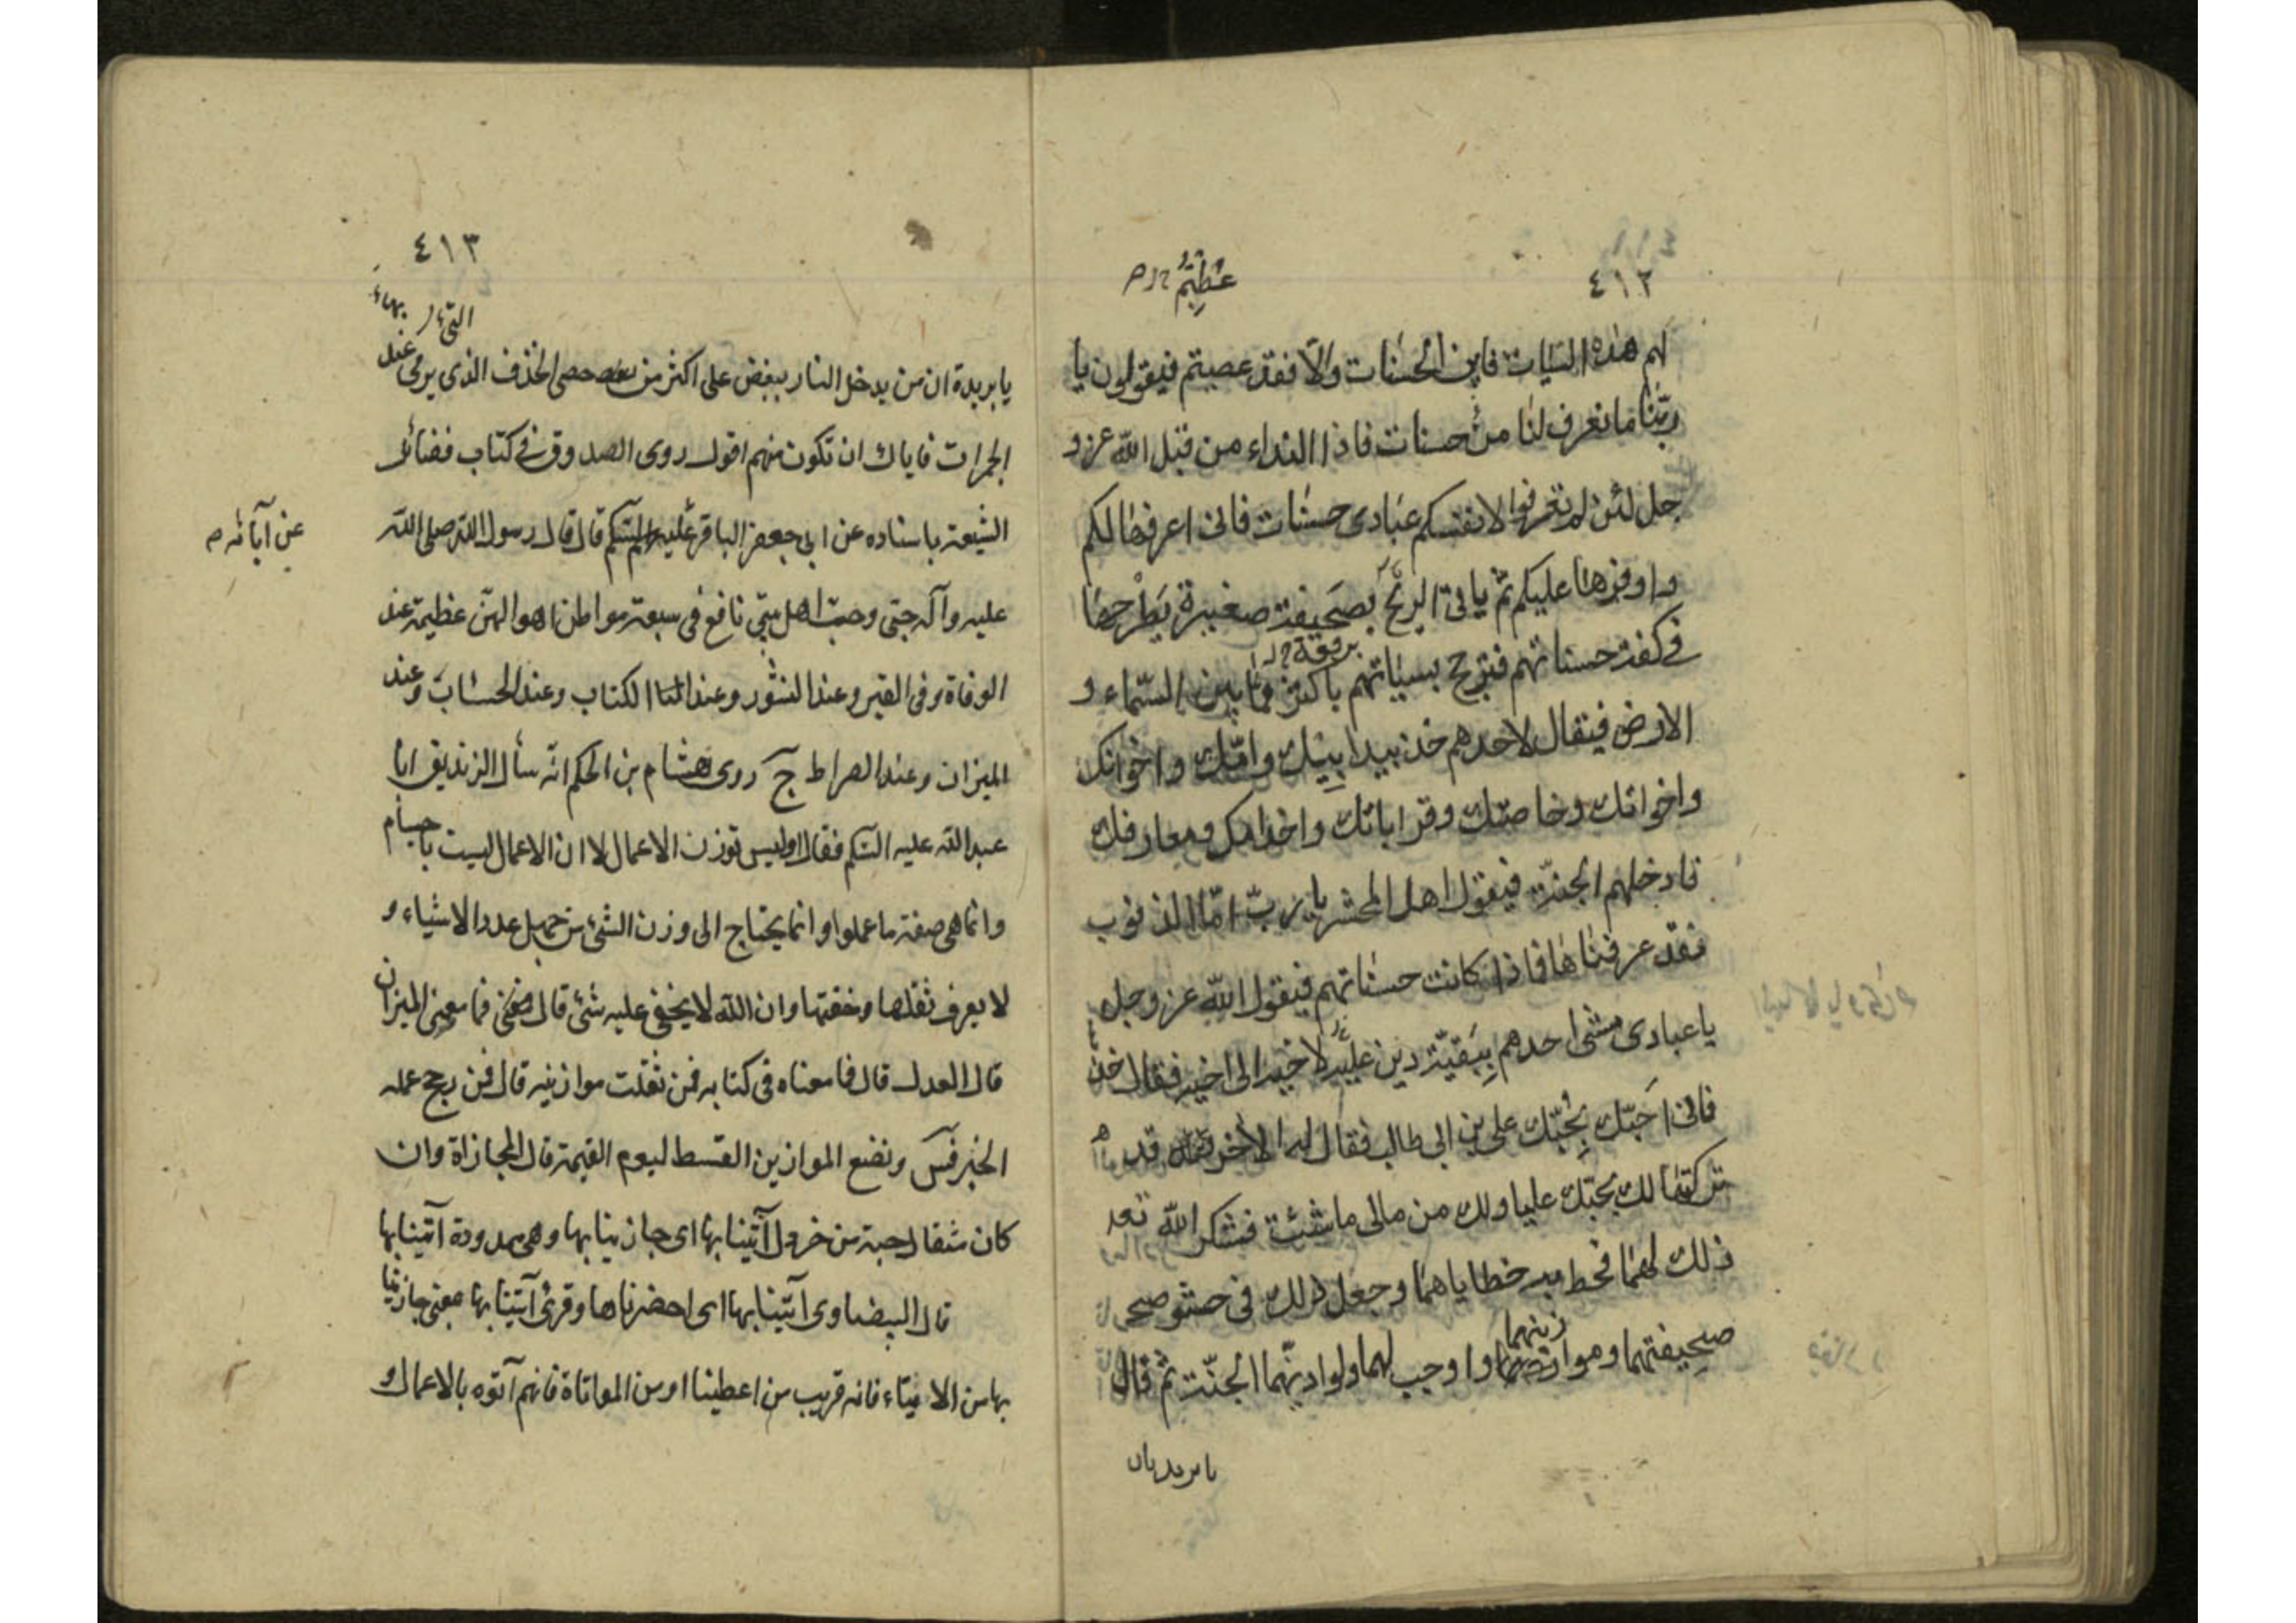 ٤١٢
عظيم
لهم هذه السيات فاين الحسنات والا فقد عصيتم فيقولون يا
ربنا ما نعرف لنا من حسنات فاذا النداء من قبل الله عز و
جل لئن لم تعرفوا لانفسكم عبادى حسنات فانى اعرفها لكم
واوفرها عليكم ثم ياتى الريح بصحيفة صغيرة يطرحها
برقعة
فى كفة حسناتهم فترجح بسيئاتهم باكثر مما بين السماء و
الارض فيقال لاحدهم خذ بيد ابيك وامك واخوانك
واخواتك وخاصتك وقراباتك واخدامك ومعارفك
فادخلهم الجنة فيقول اهل المحشر يا رب اما الذنوب
فقد عرفناها فماذا كانت حسناتهم فيقول الله عز وجل
يا عبادى مشى احدهم ببقية دين عليه لاخيه الى اخيه فقال خذ
فانى احبك بحبك على بن ابى طالب فقال له الاخر قد
تركتها لك بحبك عليا ولك من مالى ما شئت فشكر الله تعه
ذلك لهما فحط به خطاياهما وجعل ذلك فى حشو صحى
زينهما
صحيفتهما وموا واوجب لهما ولوالديهما الجنة ثم قال
يا بريدة ان
٤١٣
التى بها
يا بريدة ان من يدخل النار ببغض على اكثر من حصى الخذف الذى يرمى عند
الجمرات فاياك ان تكون منهم اقول روى الصدوق فى كتاب فضائل
الشيعة باسناده عن ابى جعفر الباقر عليه السلم قال قال رسول الله صلى الله
عن آبائه
عليه وآله حبى وحب اهل بيتى نافع فى سبعة مواطن اهوالهن عظيمة عند
الوفاة وفى القبر وعند النشور وعند الكتاب وعند الحساب وعند
الميزان وعند الصراط ج روى هشام بن الحكم انه سأل الزنديق ابا
عبد الله عليه السلم فقال اوليس توزن الاعمال لا ان الاعمال ليست باجسام
وانما هى صفة ما عملوا وانما يحتاج الى وزن الشئ من جهل عدد الاشياء و
لا يعرف ثقلها وخفتها وان الله لا يخفى عليه شئ قال فما معنى الميزان
قال العدل قال فما معناه فى كتابه فمن ثقلت موازينه قال فمن رجح عمله
الخبر فس ونضع الموازين القسط ليوم القيمة قال المجازاة وان
كان مثقال حبة من خردل آتينا بها اى جازينا بها وهى ممدودة آتينا بها
قال البيضاوى آتينا بها اى احضرناها وقرئ آتينا بها بمعنى جازينا
بها من الايتاء فانه قريب من اعطينا او من المواتاة فانهم آتوه بالاعمال و